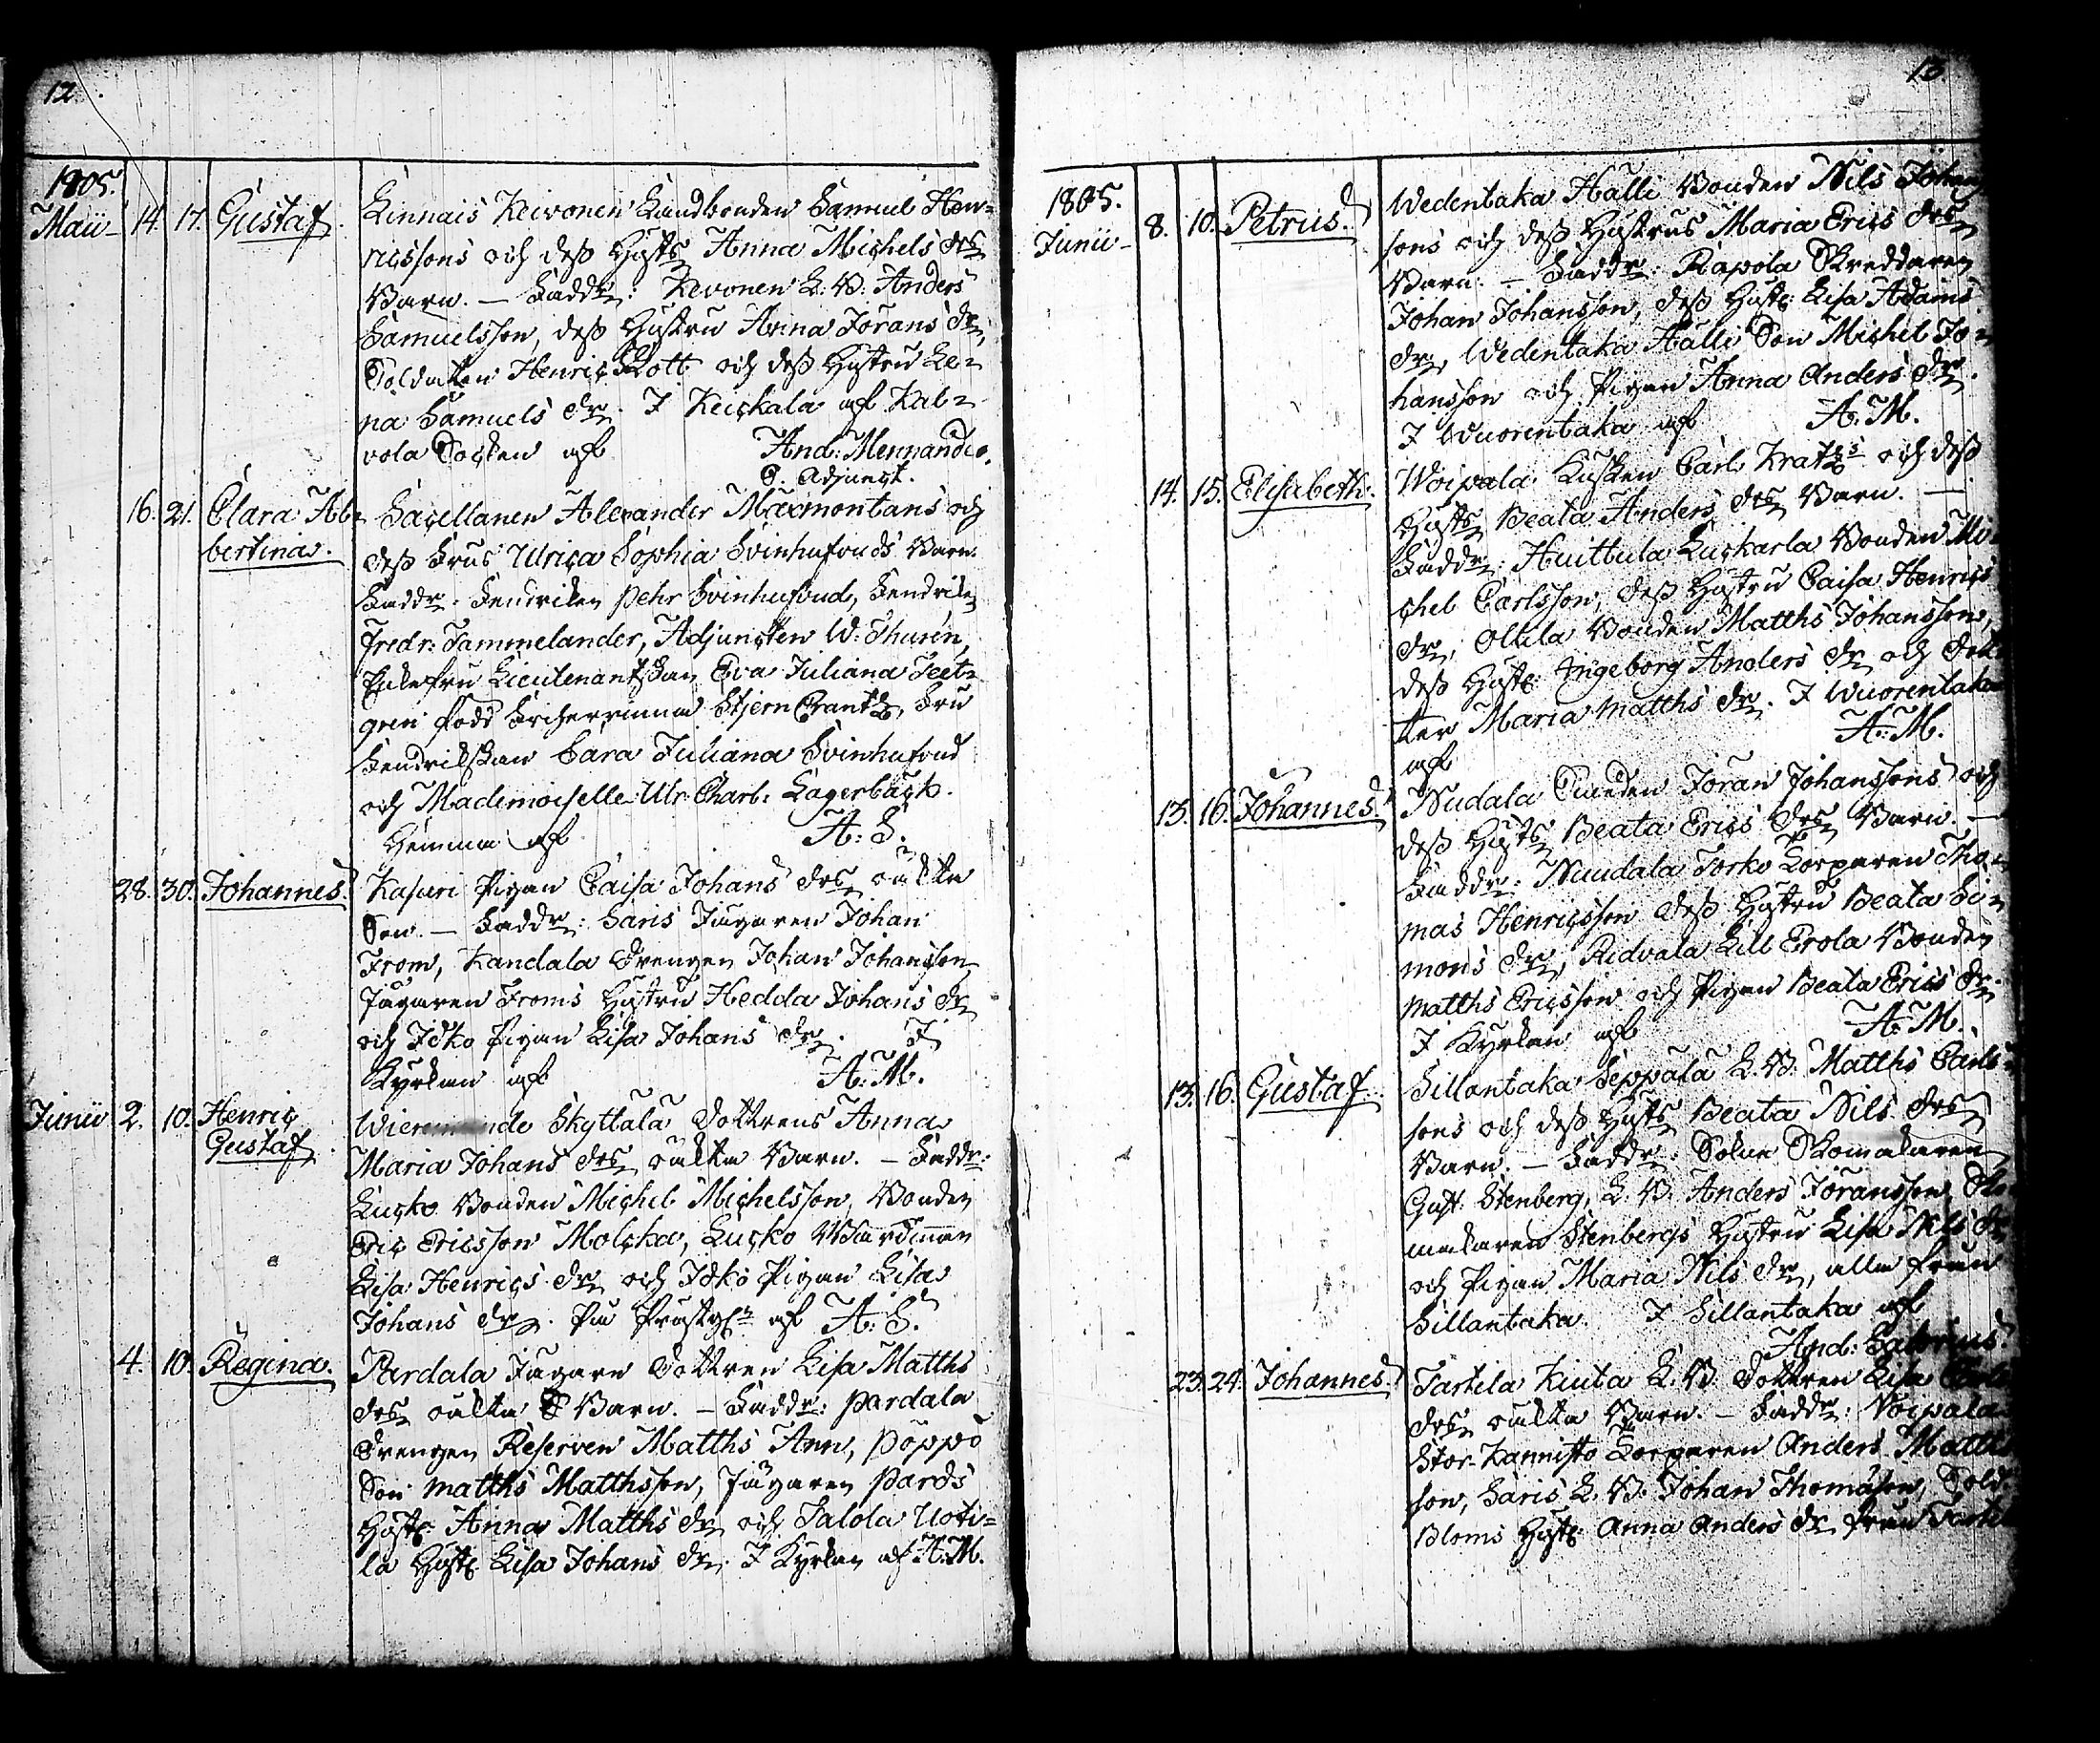 12
1805.
Maii 14. 17. Gustaf. Linnais Keivonen Landbonden Samuel Hen=
ricssons och dess Hust[rs] Anna Michels drs
Barn. — Faddr: Kevonen L. B. Anders
Samuelsson, dess Hustru Anna Jörans dr,
Soldaten Henric Rott och dess Hustru Le=
na Samuels dr. I Keickala af Kal=
vola Socken af And: Mennander.
P. Adjunct.
16. 21. Clara Al= Sacellanen Alexander Maxmontans och
bertina. dess Frus Ulrica Sophia Svinhufvuds Barn.
Faddr: Fendriken Pehr Svinhufvud, Fendriken
Fredr: Tammelander, Adjuncten W. Thurén,
Enkefru Lieutenantskan Eva Juliana Teet=
gren född Friherrinna StjernCrantz, Fru
Fendrikskan Sara Juliana Svinhufvud
och Mademoiselle Ulr. Charl: Lagerbäck.
Hemma af A: S.
28. 30. Johannes. Kasuri Pigan Caisa Johans drs oäkta
Son. — Faddr: Saris Jägaren Johan
From, Kandala Drengen Johan Johansson,
Jägaren Froms Hustru Hedda Johans dr
och Idko Pigan Lisa Johans dr. I
Kyrkan af A: M.
Junii 2. 10. Henric Skyttälä Dottrens Anna
Gustaf. Maria Johans drs oäkta Barn. — Faddr:
Lucko Bonden Michel Michelsson, Bonden
Eric Ericsson Molcka, Lucko Wärdinnan
Lisa Henrics dr och Idko Pigan Lisa
Johans dr. På Prästg:n af A: S.
4. 10. Regina. Pardala Jägare Dottren Lisa Matths
drs oäkta Barn. — Faddr: Pardala
Drengen Reserven Matths Ann, Pöppö
Son Matths Matthsson, Jägaren Pards
Hust: Anna Matths dr och Jalola Uoti=
la Hust: Lisa Johans dr. I Kyrkan af A: M.
13
1805.
Junii 8. 10. Petrus. Wedentaka Hälli Bonden Nils Johans
sons och dess Hustrus Maria Erics drs
Barn. — Faddr: Rapola Skreddaren
Johan Johansson, dess Hust: Lisa Adams
dr, Wedentaka Hälli Son Michel Jo=
hansson och Pigan Anna Anders dr.
I Wuorentaka af A: M.
14. 15. Elisabeth. Woipala Kusken Carl Kratz's och dess
Hust[rs] Beata Anders drs Barn. —
Faddr: Huittula Luckarla Bonden Mi=
chel Carlsson, dess Hustru Caisa Henrics
dr, Ollila Bonden Matths Johansson,
dess Hust: Ingeborg Anders dr och Dot=
ter Maria Matths dr. I Wuorentaka
af A: M.
13. 16. Johannes. Nudala Joran Johanssons och
dess Hust[rs] Beata Erics drs Barn. —
Faddr: Nuudala Torko Torparen Tho=
mas Henricsson dess Hustru Beata Si=
mons dr, Ridvala Lill Erola Bonden
Matths Ericsson och Pigan Beata Erics dr.
I Kyrkan af A: M.
13. 16. Gustaf. Sillantaka Seppälä L. B. Matths Carls=
sons och dess Hust[rs] Beata Nils drs
Barn. — Faddr: Skomakaren
Gust. Stenberg, L. B. Anders Jöransson, Sko
makaren Stenbergs Hustru Lisa Nils dr
och Pigan Maria Nils dr, alla från
Sillantaka. I Sillantaka af
And: Salovius.
23. 24. Johannes. Tartila Kiuta L. B. Dottren Lisa Carls
drs oäkta Barn. — Faddr: Voipala
Stor-Kannisto Torparen Anders Matths
son, Saris L. B. Johan Thomasson, Sold.
Bloms Hust: Anna Anders dr från Tartila